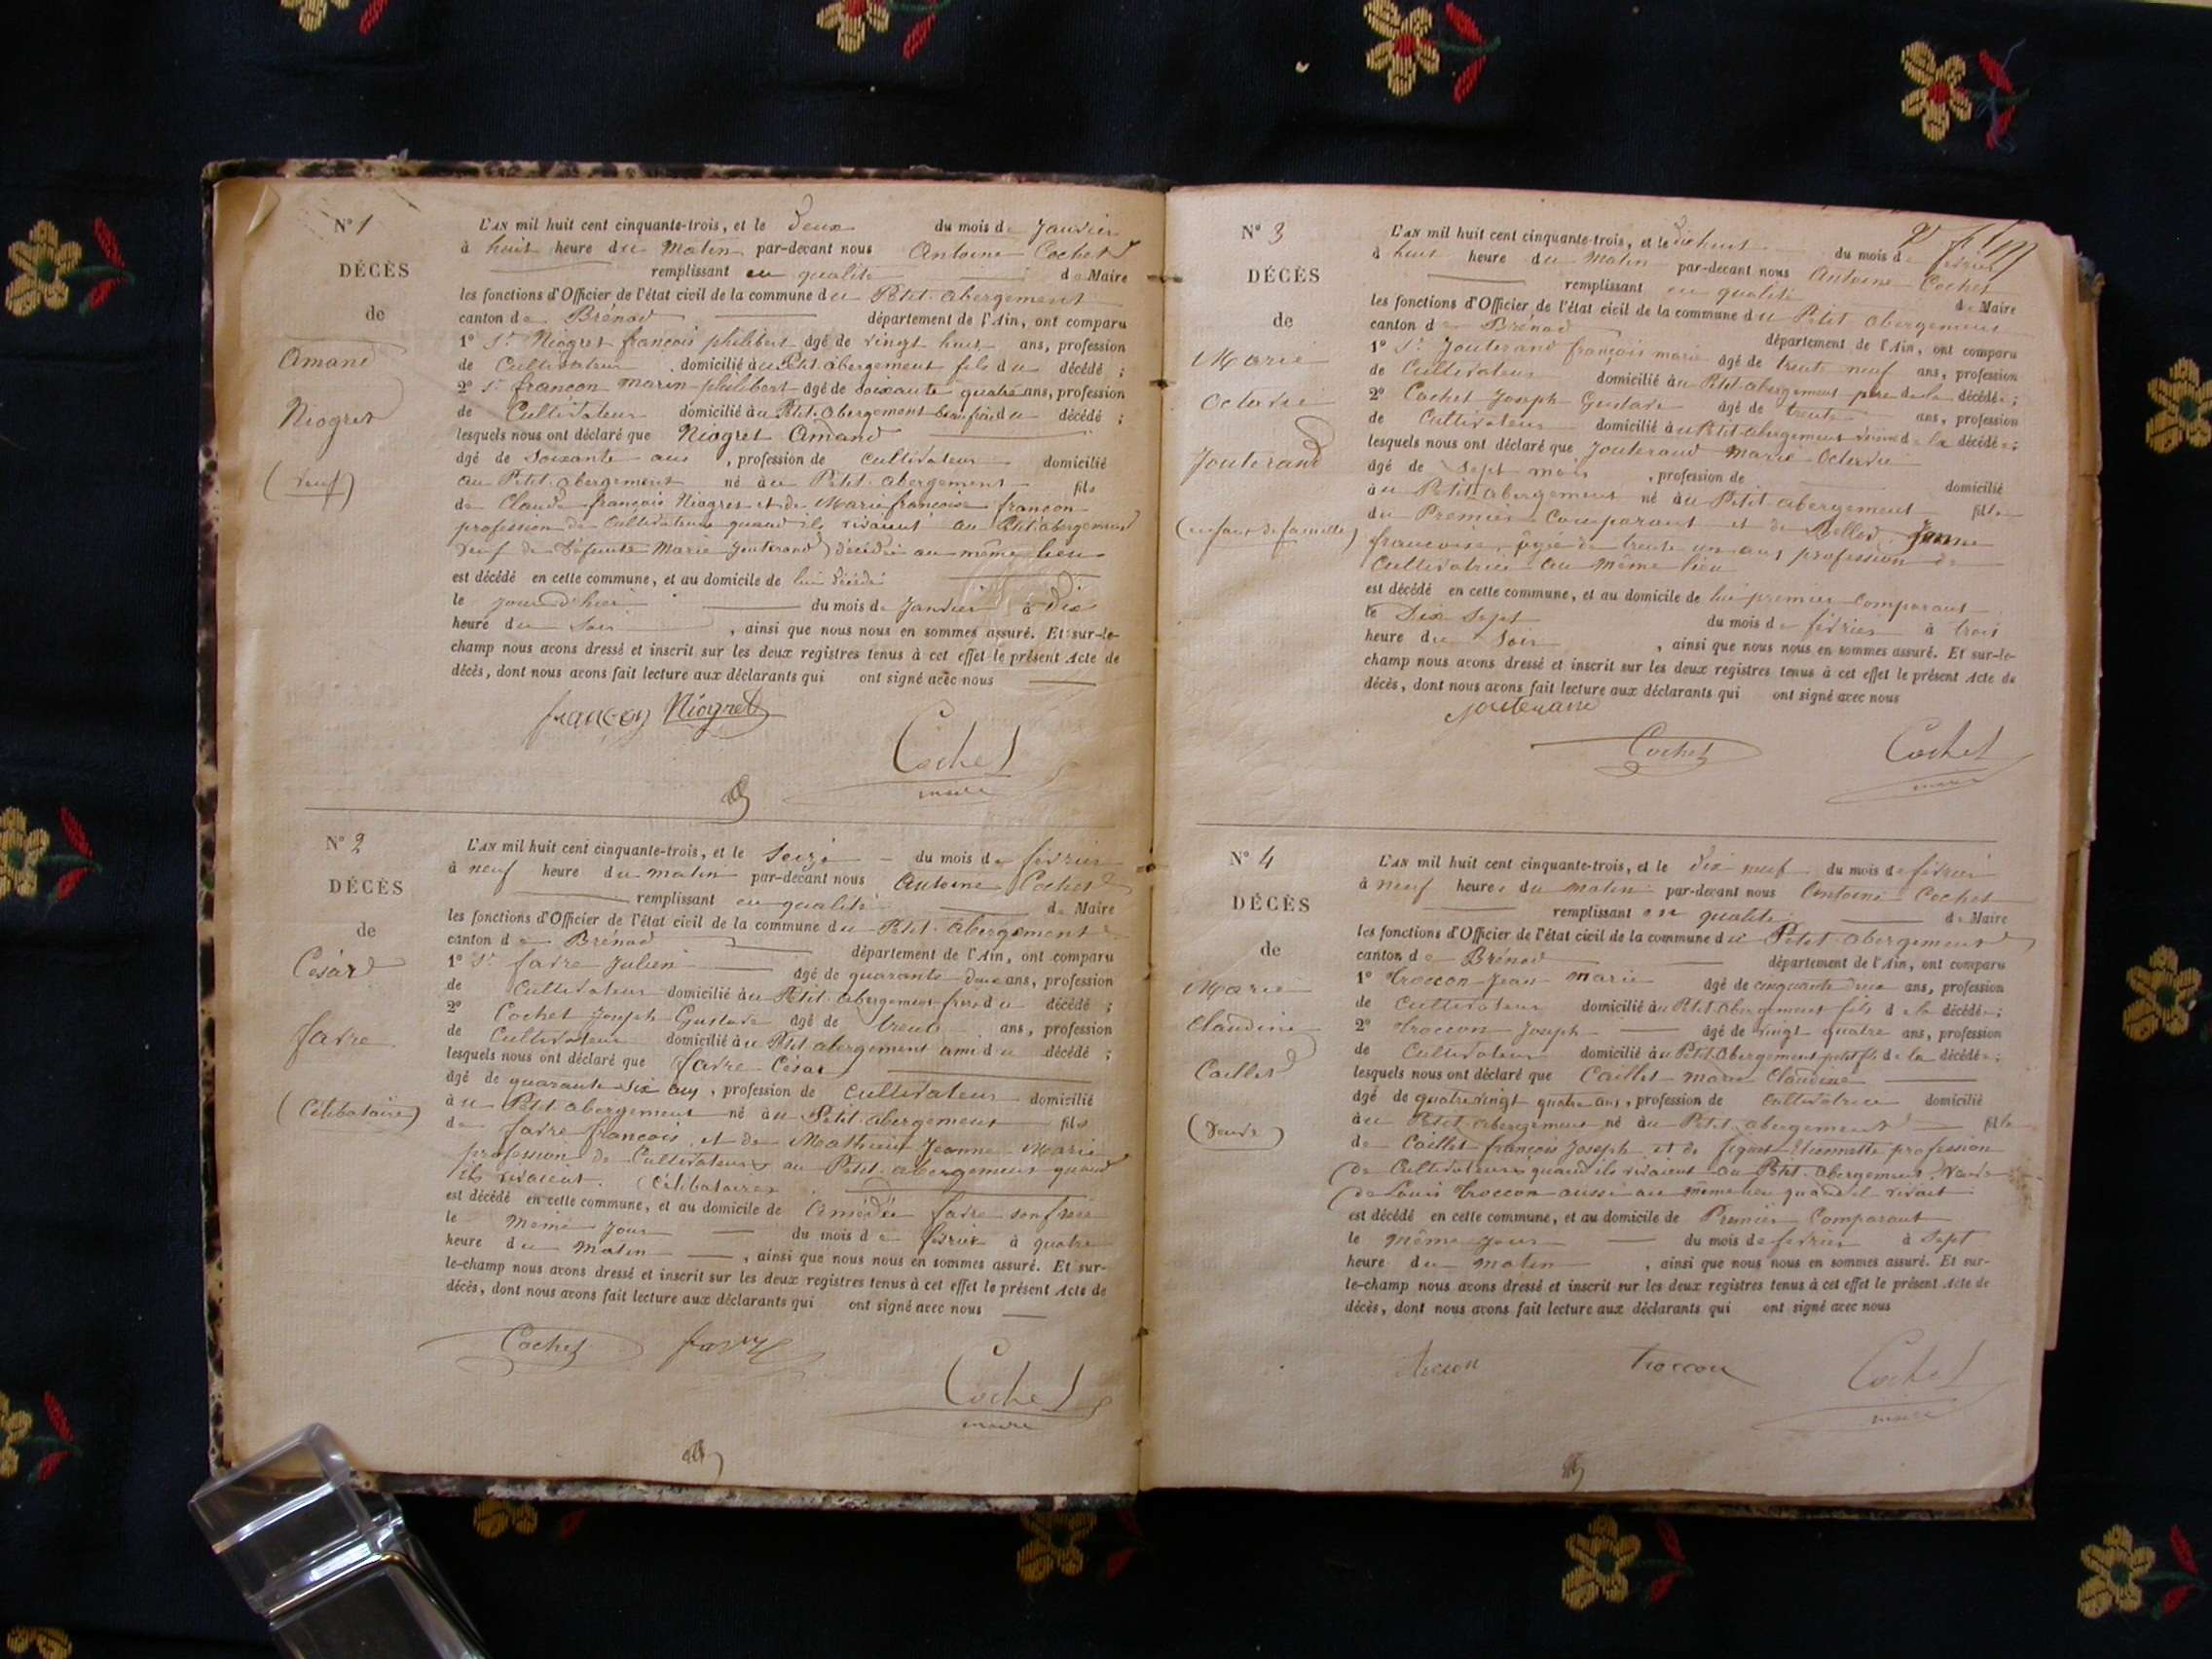 N° 1
DÉCÈS
de
Amand
Niogret
(veuf)
L'AN mil huit cent cinquante-trois, et le Deux du mois de Janvier
à huit heure du Matin par-devant nous Antoine Cochet
remplissant en qualité de Maire
les fonctions d'Officier de l'état civil de la commune du Petit-abergement
canton de Brénod département de l'Ain, ont comparu
1° Sr Niogret françois philibert âgé de vingt huit ans, profession
de Cultivateur domicilié au Petit abergement fils du décédé ;
2° Sr françon marin philibert âgé de soixante quatre ans, profession
de Cultivateur domicilié au Petit-abergement beaufrère du décédé ;
lesquels nous ont déclaré que Niogret Amand
âgé de soixante ans, profession de cultivateur domicilié
au Petit-abergement né au Petit-abergement fils
de Claude françois Niogret et de Marie françoise françon
profession de Cultivateurs quand ils vivaient au Petit abergement
veuf de Défunte Marie Jouterand décédée au même lieu
est décédé en cette commune, et au domicile de lui décédé
le jour d'hier du mois de Janvier à Dix
heure du Soir, ainsi que nous nous en sommes assuré. Et sur-le-
champ nous avons dressé et inscrit sur les deux registres tenus à cet effet le présent Acte de
décès, dont nous avons fait lecture aux déclarants qui ont signé avec nous
françon Niogret
Cochet
maire
N° 2
DÉCÈS
de
César
favre
(Célibataire)
L'AN mil huit cent cinquante-trois, et le Seize du mois de février
à neuf heure du matin par-devant nous Antoine Cochet
remplissant en qualité de Maire
les fonctions d'Officier de l'état civil de la commune du Petit-abergement
canton de Brénod département de l'Ain, ont comparu
1° Sr favre Julien âgé de quarante deux ans, profession
de Cultivateur domicilié au Petit-abergement frère du décédé ;
2° Cochet Joseph Gustave âgé de trente ans, profession
de Cultivateur domicilié au Petit abergement ami du décédé ;
lesquels nous ont déclaré que favre César
âgé de quarante six ans, profession de cultivateur domicilié
au Petit abergement né au Petit-abergement fils
de favre françois et de Mathieu Jeanne Marie
profession de Cultivateurs au Petit-abergement quand
ils vivaient. (Célibataire)
est décédé en cette commune, et au domicile de Amédée favre son frère
le même jour du mois de février à quatre
heure du matin, ainsi que nous nous en sommes assuré. Et sur-
le-champ nous avons dressé et inscrit sur les deux registres tenus à cet effet le présent Acte de
décès, dont nous avons fait lecture aux déclarants qui ont signé avec nous
Cochet favre
Cochet
maire
N° 3
DÉCÈS
de
Marie
Octavie
Jouterand
(enfant de famille)
L'AN mil huit cent cinquante-trois, et le Dix huit du mois de février
à huit heure du Matin par-devant nous Antoine Cochet
remplissant en qualité de Maire
les fonctions d'Officier de l'état civil de la commune du Petit abergement
canton de Brénod département de l'Ain, ont comparu
1° Sr Jouterand françois marie âgé de trente neuf ans, profession
de Cultivateur domicilié au Petit abergement père de la décédée ;
2° Cochet Joseph Gustave âgé de trente ans, profession
de Cultivateur domicilié au Petit abergement voisin de la décédée ;
lesquels nous ont déclaré que Jouterand Marie Octavie
âgé de Sept mois, profession de domicilié
au Petit-abergement né au Petit abergement fille
du Premier Comparant et de Jeanne
françoise, âgée de trente un ans profession de
Cultivatrice au même lieu
est décédé en cette commune, et au domicile de lui premier Comparant
le Dix Sept du mois de février à trois
heure du Soir, ainsi que nous nous en sommes assuré. Et sur-le-
champ nous avons dressé et inscrit sur les deux registres tenus à cet effet le présent Acte de
décès, dont nous avons fait lecture aux déclarants qui ont signé avec nous
Jouterand
Cochet Cochet
maire
N° 4
DÉCÈS
de
Marie
Claudine
Caillet
(Veuve)
L'AN mil huit cent cinquante-trois, et le dix neuf du mois de février
à neuf heures du matin par-devant nous Antoine Cochet
remplissant en qualité de Maire
les fonctions d'Officier de l'état civil de la commune du Petit abergement
canton de Brénod département de l'Ain, ont comparu
1° troccon Jean Marie âgé de cinquante deux ans, profession
de Cultivateur domicilié au Petit abergement fils de la décédée ;
2° troccon Joseph âgé de vingt quatre ans, profession
de Cultivateur domicilié au Petit-abergement petit fils de la décédée ;
lesquels nous ont déclaré que Caillet marie Claudine
âgé de quatre vingt quatre ans, profession de Cultivatrice domicilié
au Petit abergement né au Petit abergement fille
de Caillet françois Joseph et de Etiennette profession
de Cultivateurs quand ils vivaient au Petit-abergement. Veuve
de Louis troccon aussi au même lieu quand il vivait
est décédé en cette commune, et au domicile de Premier Comparant
le même jour du mois de février à Sept
heure du matin, ainsi que nous nous en sommes assuré. Et sur-
le-champ nous avons dressé et inscrit sur les deux registres tenus à cet effet le présent Acte de
décès, dont nous avons fait lecture aux déclarants qui ont signé avec nous
troccon troccon
Cochet
maire